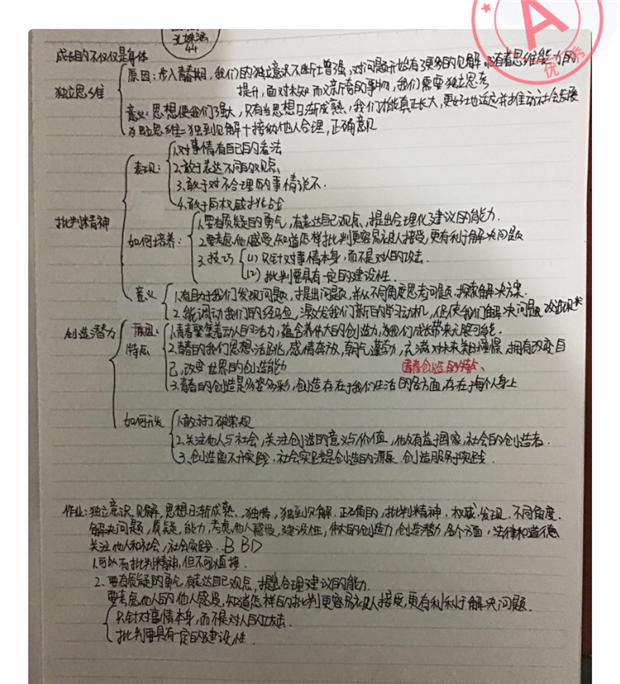 A
优秀
44
成长的不仅仅是身体
独立思维
原因:步入青春期,我们的独立意识不断增强,对问题开始有了更多的见解,随着思维能力的
提升,面对未知而又新奇的事物,我们需要独立思考
意义:思想使我们强大,只有当思想日渐成熟,我们才能真正长大,更好地适应并推动社会发展
独立思维=独到见解+接纳他人合理,正确意见
批判精神
表现:
1.对事情有自己的看法
2.敢于表达不同的观点
3.敢于对不合理的事情说不.
4.敢于向权威挑战
如何培养:
1.要有质疑的勇气,有表达自己观点,提出合理化建议的能力.
2.要考虑他人感受,知道怎样批判更容易被人接受,更有利于解决问题
3.技巧
(1)只针对事情本身,而不是对人的攻击.
(2)批判要具有一定的建设性.
意义
1.有助于我们发现问题,提出问题,并从不同角度思考问题,探索解决方案.
2.能调动我们的经验,激发我们新的学习动机,促使我们解决问题,改进现状
创造潜力
原因:
特点
1.青春蕴着动人的活力,蕴含着伟大的创造力,为我们成长带来无限可能.
2.青春的我们思想活跃,感情奔放,朝气蓬勃,充满对未来美好憧憬,拥有改变自
己,改变世界的创造能力
青春创造的特点、
3.青春的创造是多姿多彩,创造存在于我们生活的各方面,存在于每个人身上
如何开发
1.敢于打破常规
2.关注他人与社会,关注创造的意义与价值,做有益于国家,社会的创造者.
3.创造离不开实践,社会实践是创造的源泉.创造服务于实践.
作业:独立意识,见解,思想日渐成熟、独特,独到见解.正确的,批判精神,权威,发现,不同角度.
解决问题,质疑,能力,考虑他人感受,建设性,伟大的创造力,创造潜力,各个方面,法律和道德
关注他人和社会,社会实践. BBD
1.可以有批判精神,但不可
2.要有质疑的勇气,有表达自己观点,提出合理建议的能力.
要考虑他人的他人感受,知道怎样的批判更容易被人接受,更有利于解决问题.
只针对事情本身,而不是对人的攻击.
批判要具有一定的建设性.